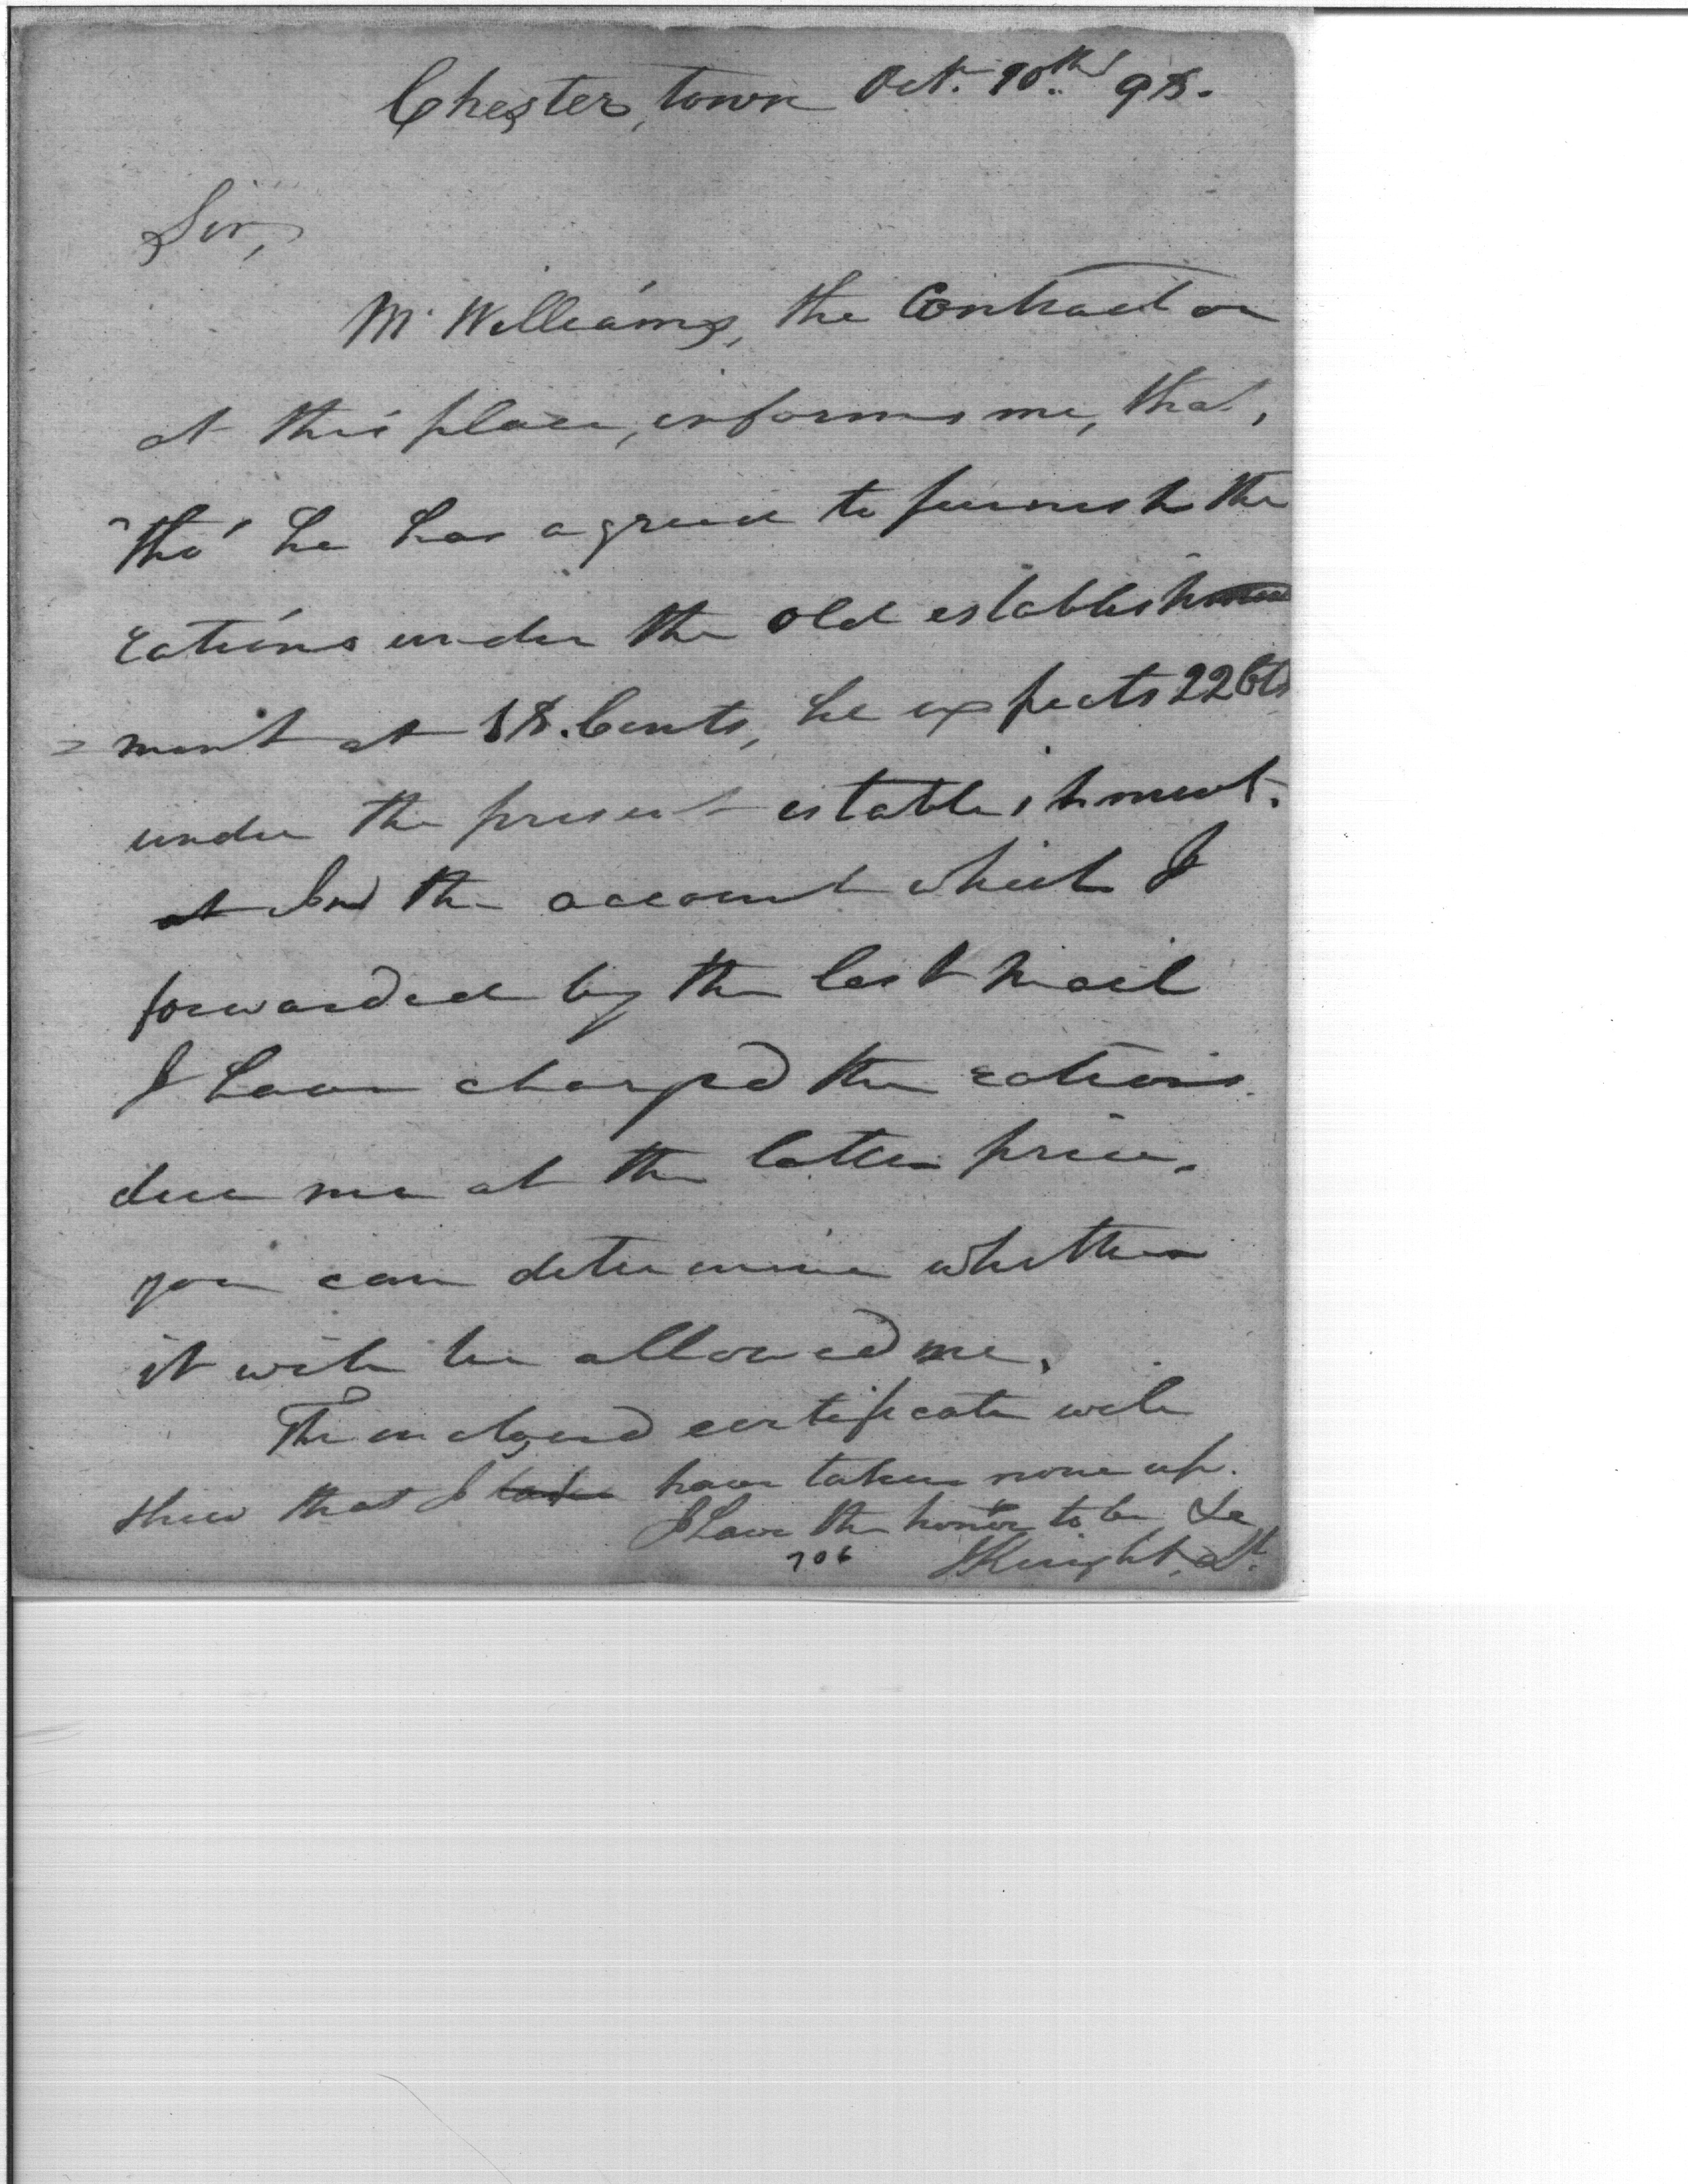 Chester town Oct. 10th 98.
Sir,
Mr Williams, the Contractor
at this place, informs me, that,
tho' he has agreed to furnish the
rations under the old establishm
= ment at 18. Cents, he expects 22 Cts
under the present establishment.
at In the account which I
forwarded by the last Mail
I have charged the rations
due me at the latter price.
you can determine whether
it will be allowed me.
The inclosed certificate will
shew that I have taken none up.
I have the honor to be &c
JKnight, Lt.
706